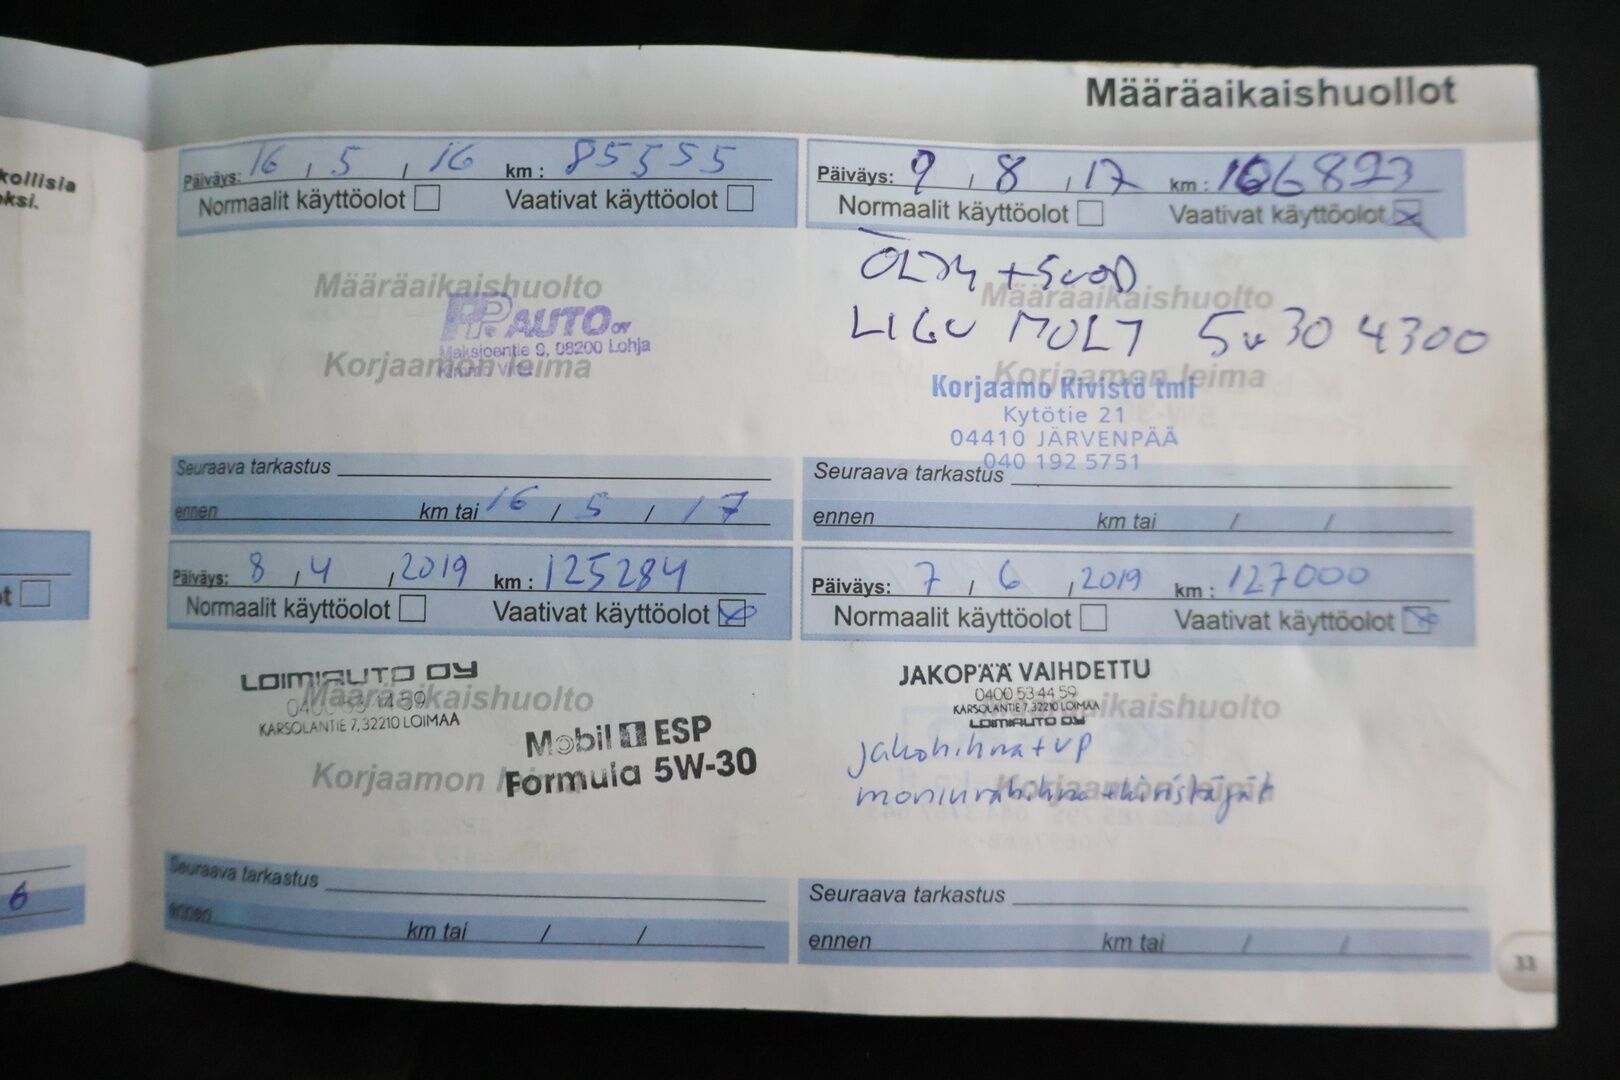 Määräaikaishuollot
kollisia
ksi.
Päiväys: 16 / 5 / 16 km : 85555
Normaalit käyttöolot Vaativat käyttöolot
Määräaikaishuolto
P.P. AUTO OY
Maksjoentie 9, 08200 Lohja
Korjaamon leima
Seuraava tarkastus
ennen km tai 16 / 5 / 17
Päiväys: 9 / 8 / 17 km : 106823
Normaalit käyttöolot Vaativat käyttöolot
ÖLJY + SUOD
Määräaikaishuolto
LIGU MOLY 5w30 4300
Korjaamon leima
Korjaamo Kivistö tmi
Kytötie 21
04410 JÄRVENPÄÄ
040 192 5751
Seuraava tarkastus
ennen km tai / /
Päiväys: 8 / 4 / 2019 km : 125284
Normaalit käyttöolot Vaativat käyttöolot
LOIMIAUTO OY
Määräaikaishuolto
0400 53 44 59
KARSOLANTIE 7, 32210 LOIMAA
Mobil 1 ESP
Formula 5W-30
Korjaamon
Seuraava tarkastus
ennen km tai / /
Päiväys: 7 / 6 / 2019 km : 127000
Normaalit käyttöolot Vaativat käyttöolot
JAKOPÄÄ VAIHDETTU
0400 53 44 59
KARSOLANTIE 7, 32210 LOIMAA
LOIMIAUTO OY
Määräaikaishuolto
jakohihna + vp
Korjaamon leima
moniurahihna + kiristäjät
Seuraava tarkastus
ennen km tai / /
t
6
33